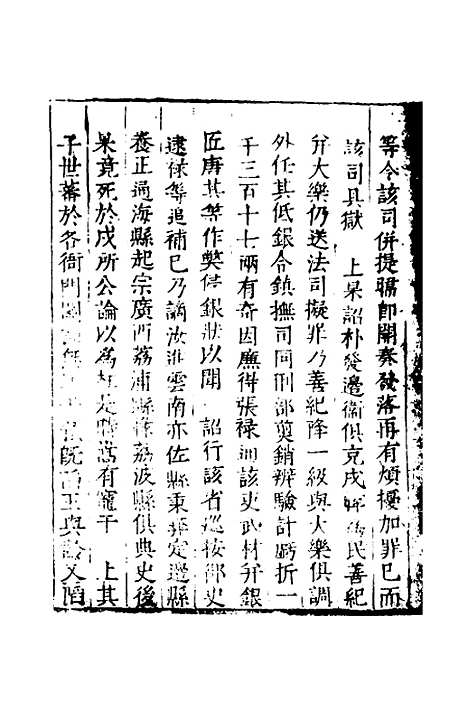 等令該司併提騙即開奏發落再有煩擾加罪已而
該司具獄 上杲詔朴發邊衞俱充戍為民善紀
弁大樂仍送法司擬罪乃善紀降一級與大樂俱調
外任其低銀令鎮撫司同刑部剪銷辨驗計虧折一
千三百十七兩有奇因廉得張禄該吏武材弁銀
匠唐其等作獘停銀狀以聞 詔行該省廵按御史
逮禄等追補已乃謫汝進雲南亦佐縣秉彞定邊縣
養正通海縣起宗廣西荔浦縣荔波縣俱典史後
杲竟死於戍所公論以為有寵于 上其
子世蕃於各衙門既與又陷